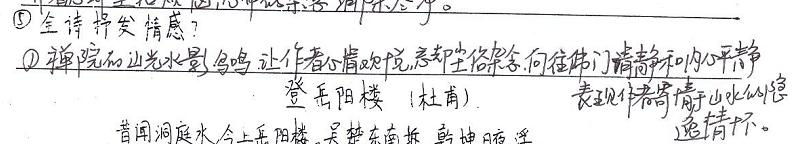 ⑤ 全诗抒发情感？
① 禅院的山光水影鸟鸣让作者心情欢悦,忘却尘俗杂念,向往佛门清静和内心平静
表现作者寄情于山水的隐
逸情怀。
登岳阳楼 （杜甫）
昔闻洞庭水,今上岳阳楼。吴楚东南坼,乾坤日夜浮